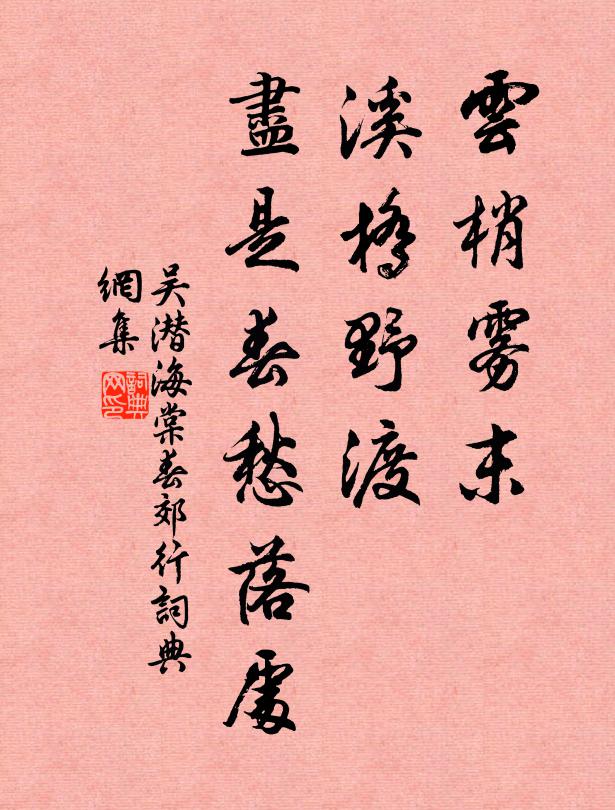 雲梢雾末
溪橋野渡
盡是春愁落處
吴潛海棠春郊行詞典
網集
詞典
网印